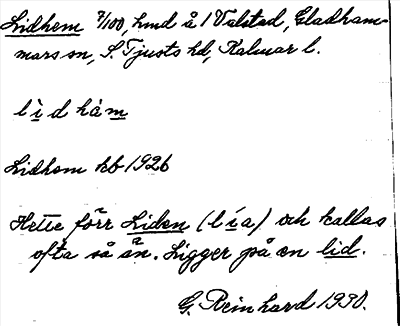 Lidhem 7/100, hmd å 1 Valstad, Gladham-
mars sn, S. Tjusts hd, Kalmar l.
lìdhám
Lidhem kb 1926
Hette förr Liden (lía) och kallas
ofta så än. Ligger på en lid.
G. Reinhard 1930.